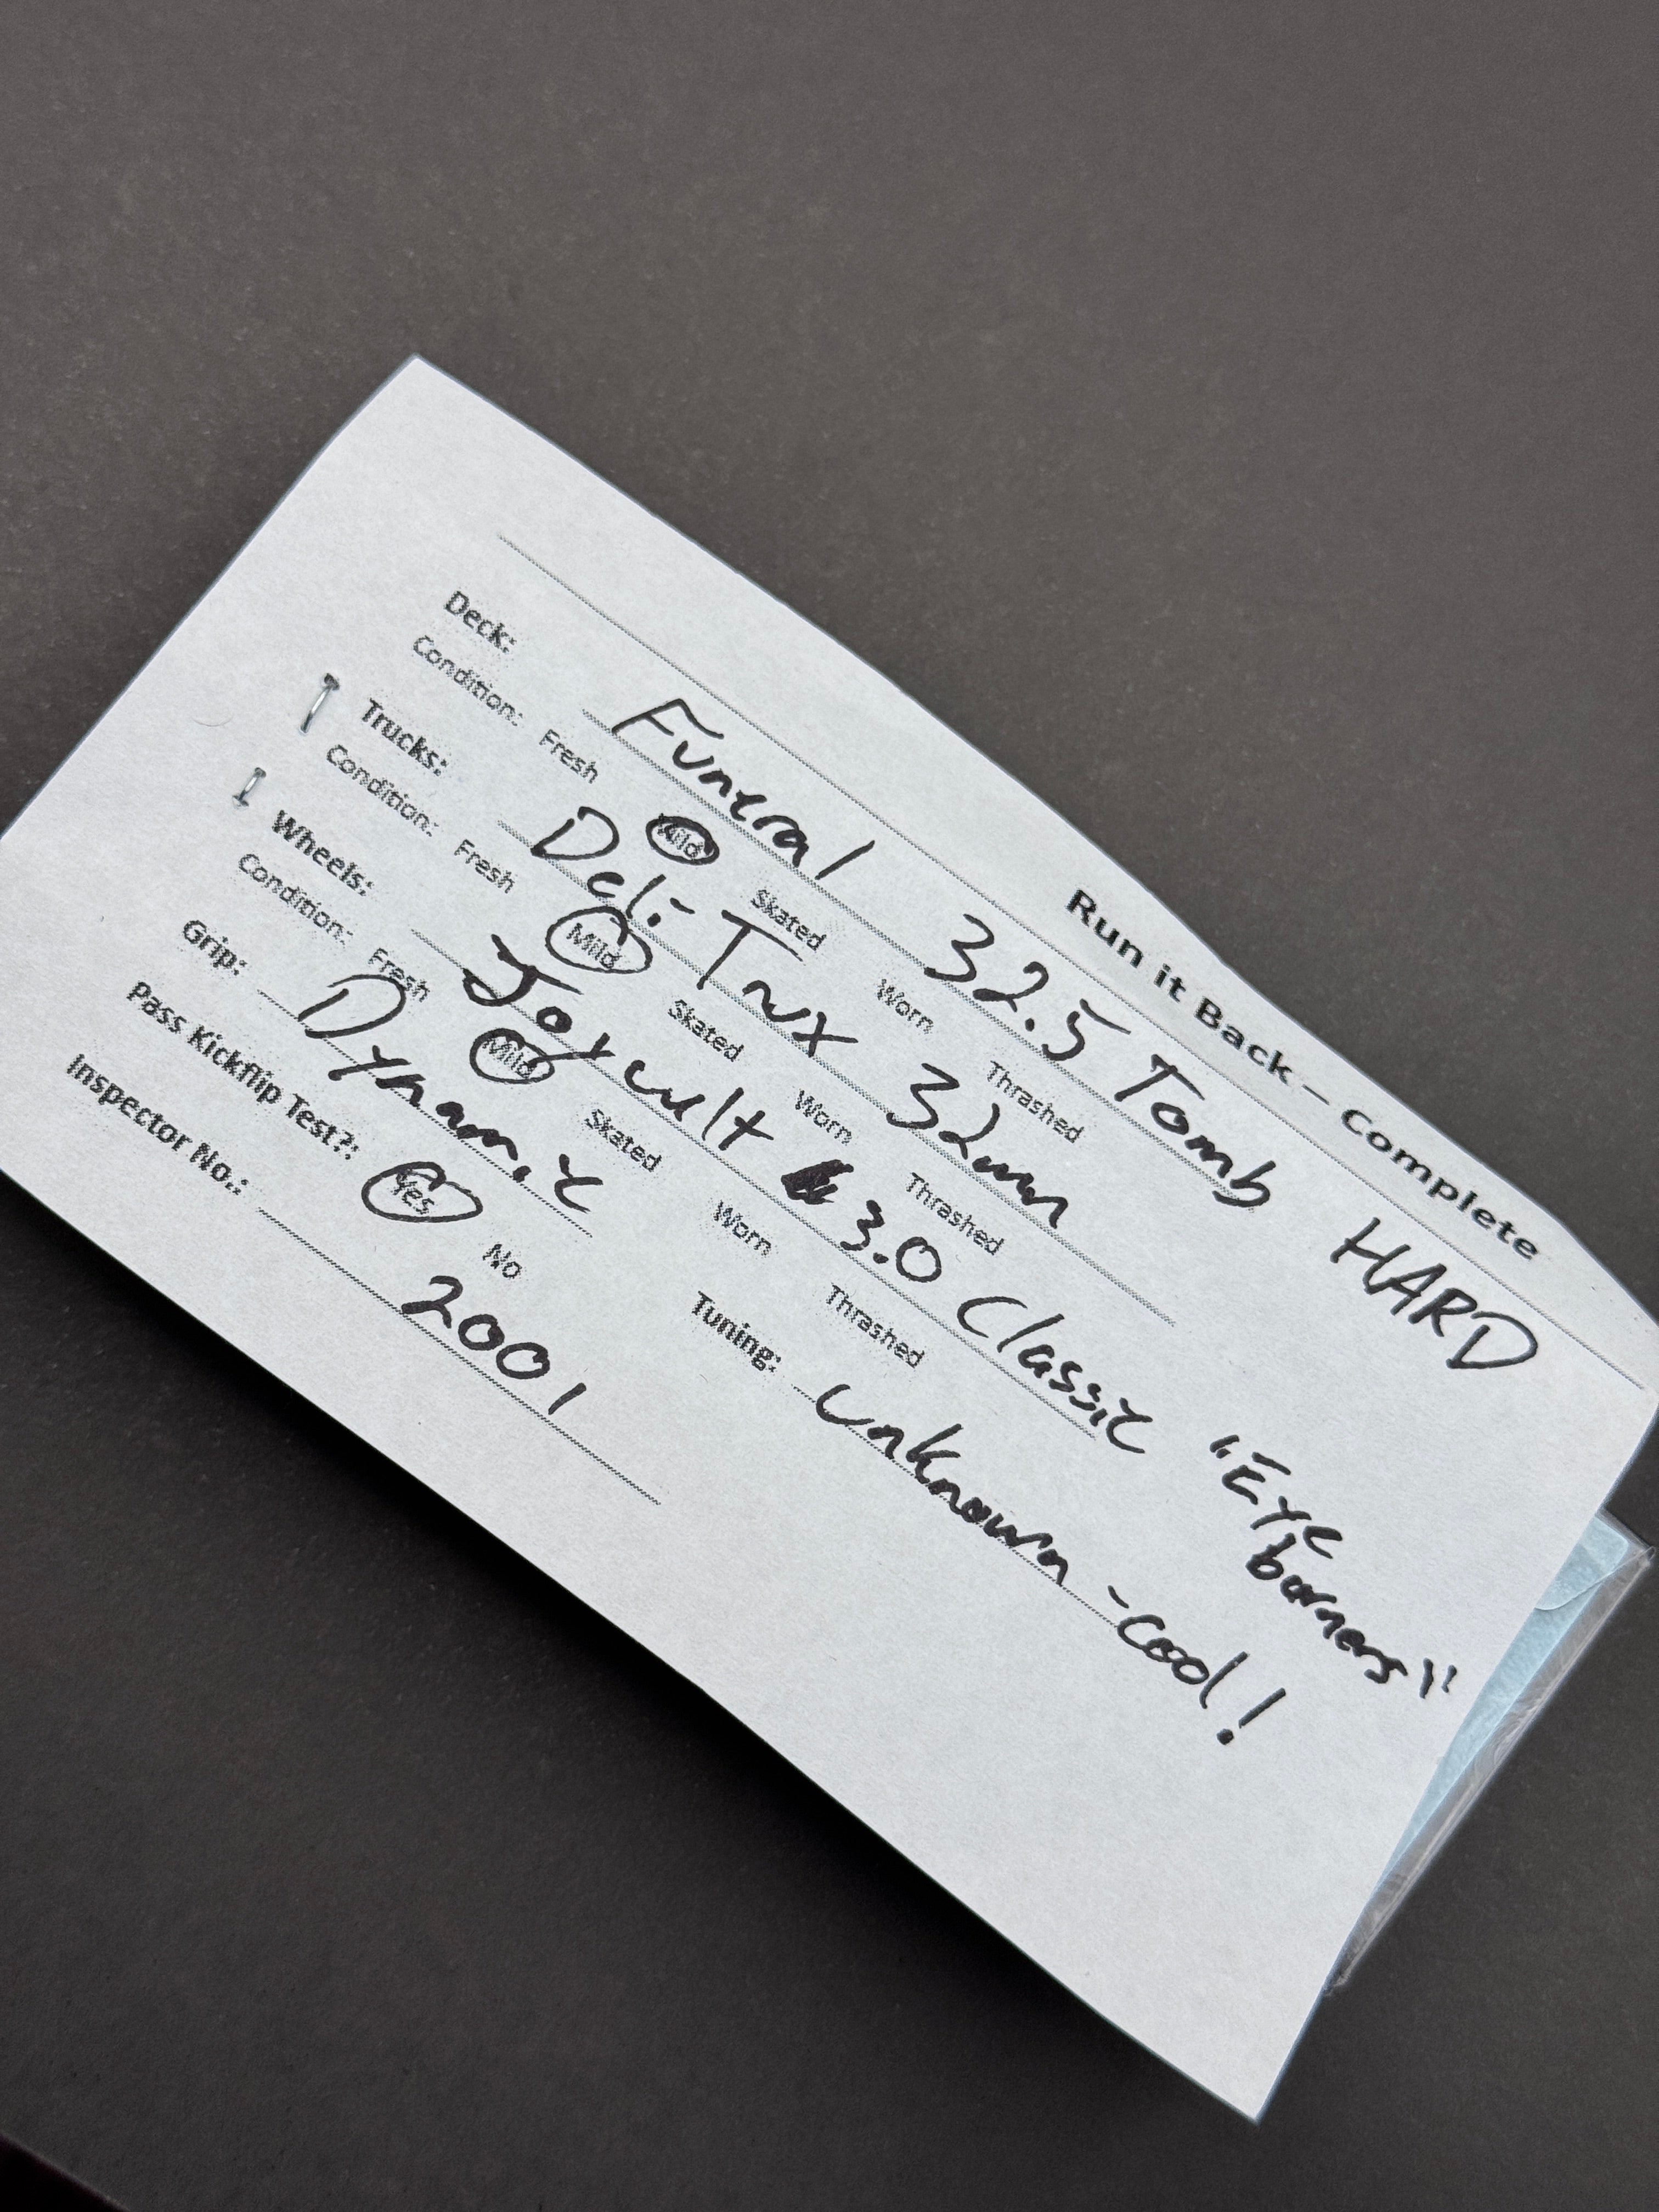 Run it Back – Complete
Deck: Funeral 32.5 Tomb HARD
Condition: Fresh Mild Skated Worn Thrashed
Trucks: Deli Trux 32mm
Condition: Fresh Mild Skated Worn Thrashed
Wheels: Joycult 3.0 Classic "Eye burners"
Condition: Fresh Mild Skated Worn Thrashed
Grip: Dynamic Tuning: unknown - cool!
Pass Kickflip Test?: Yes No
Inspector No.: 2001